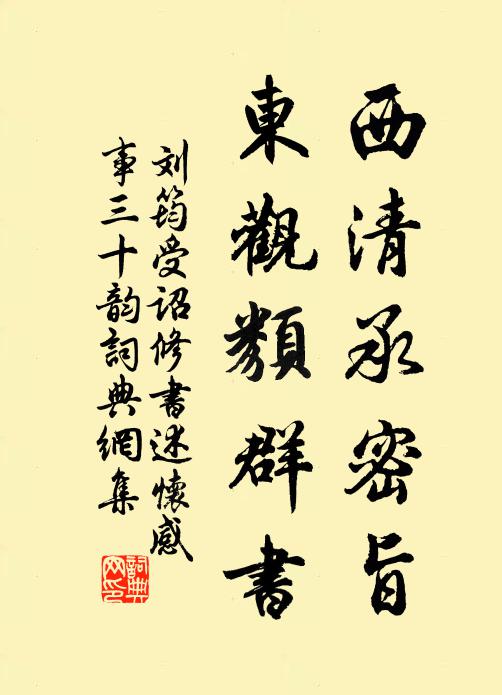 西清承密旨
東觀類群書
刘筠受诏修書述懷感
事三十韵詞典網集
詞典网印